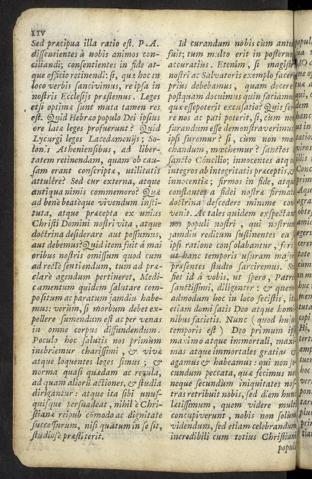 XIV
Sed præcipua illa ratio est. P. A.
dissentientes à nobis animos con-
ciliandi; consentientes in fide at-
que officio retinendi: si, quæ hoc in
loco verbis sancivimus, re ipsa in
nostris Ecclesijs præstemus. Leges
etsi optima sunt muta tamen res
est. Quid Hebræo populo Dei ipsius
ore lata leges profuerunt? Quid
Lycurgi leges Lacedæmonijs; So-
lonis Atheniensibus, ad liber-
tatem retinendam, quam ob cau-
sam erant conscripta, utilitatis
attulêre? Sed cur externa, atque
antiqua nimis commemoro? Quæ
ad benè beatèque vivendum insti-
tuta, atque præcepta ex unius
Christi Domini nostri vita, atque
doctrina desiderare aut possumus,
aut debemus? Quid item fuit à mai
oribus nostris omissum quod cum
ad rectè sentiendum, tum ad præ-
clarè agendum pertineret, Medi-
camentum quidem salutare com-
positum ac paratum jamdiu habe-
mus: verùm, si morbum debet ex-
pellere sumendum est ac per venas
in omne corpus diffundendum.
Poculo hoc salutis nos primùm
inebriemur charissimi, & vivæ
atque loquentes leges simus; &
norma quasi quædam ac regula,
ad quam aliorū actiones, & studia
dirigantur: atque ita sibi unus-
quisque persuadeat, nihil è Chri-
stianæ reipub cōmodo ac dignitate
successurum, nisi quàtum in se sit,
studiosè præstiterit.
Id curandum nobis cùm antè
fuit; tum multo erit in posterum
accuratius. Etenim, si magistri
nostri ac Salvatoris exemplo facere
prius debebamus, quàm docere
postquam docuimus quin faciamus
quæ esse poterit excusatio? Quis fer-
re nos ac pati poterit, si, cùm non
furandum esse demonstraverimus
ipsi furemur? si, cùm non mœ-
chandum, mœchemur? sanctos à
sancto Concilio; innocentes atque
integros ab integritatis præceptis,
innocentiæ; firmos in fide, atque
constantes à fidei nostræ firma
doctrina descedere minime con-
venit. Ac tales quidem expectant
populi nostri, qui nostrum
jamdiu reditum sustinentes ea
ipsi ratione consolabantur, fir-
ut hanc temporis usuram ma
præsentes studio sarciremus. Sed
hic id à vobis, ut spero, Patres
sanctissimi, diligenter: & quem
admodum hoc in loco fecistis, ita
etiam domi satis Deo atque homi-
nibus facietis. Nunc (quod huius
temporis est) Deo primùm im
maximo atque immortali, maxi-
mas atque immortales gratias &
agamus & habeamus: qui non se-
cundum peccata, quæ fecimus nos
neque secundum iniquitates nos-
tras retribuit nobis, sed diem hunc
lætissimum, quem videre multi
concupiverunt, nobis non solùm
videndum, sed etiam celebrandum
incredibili cum totius Christiani
populi